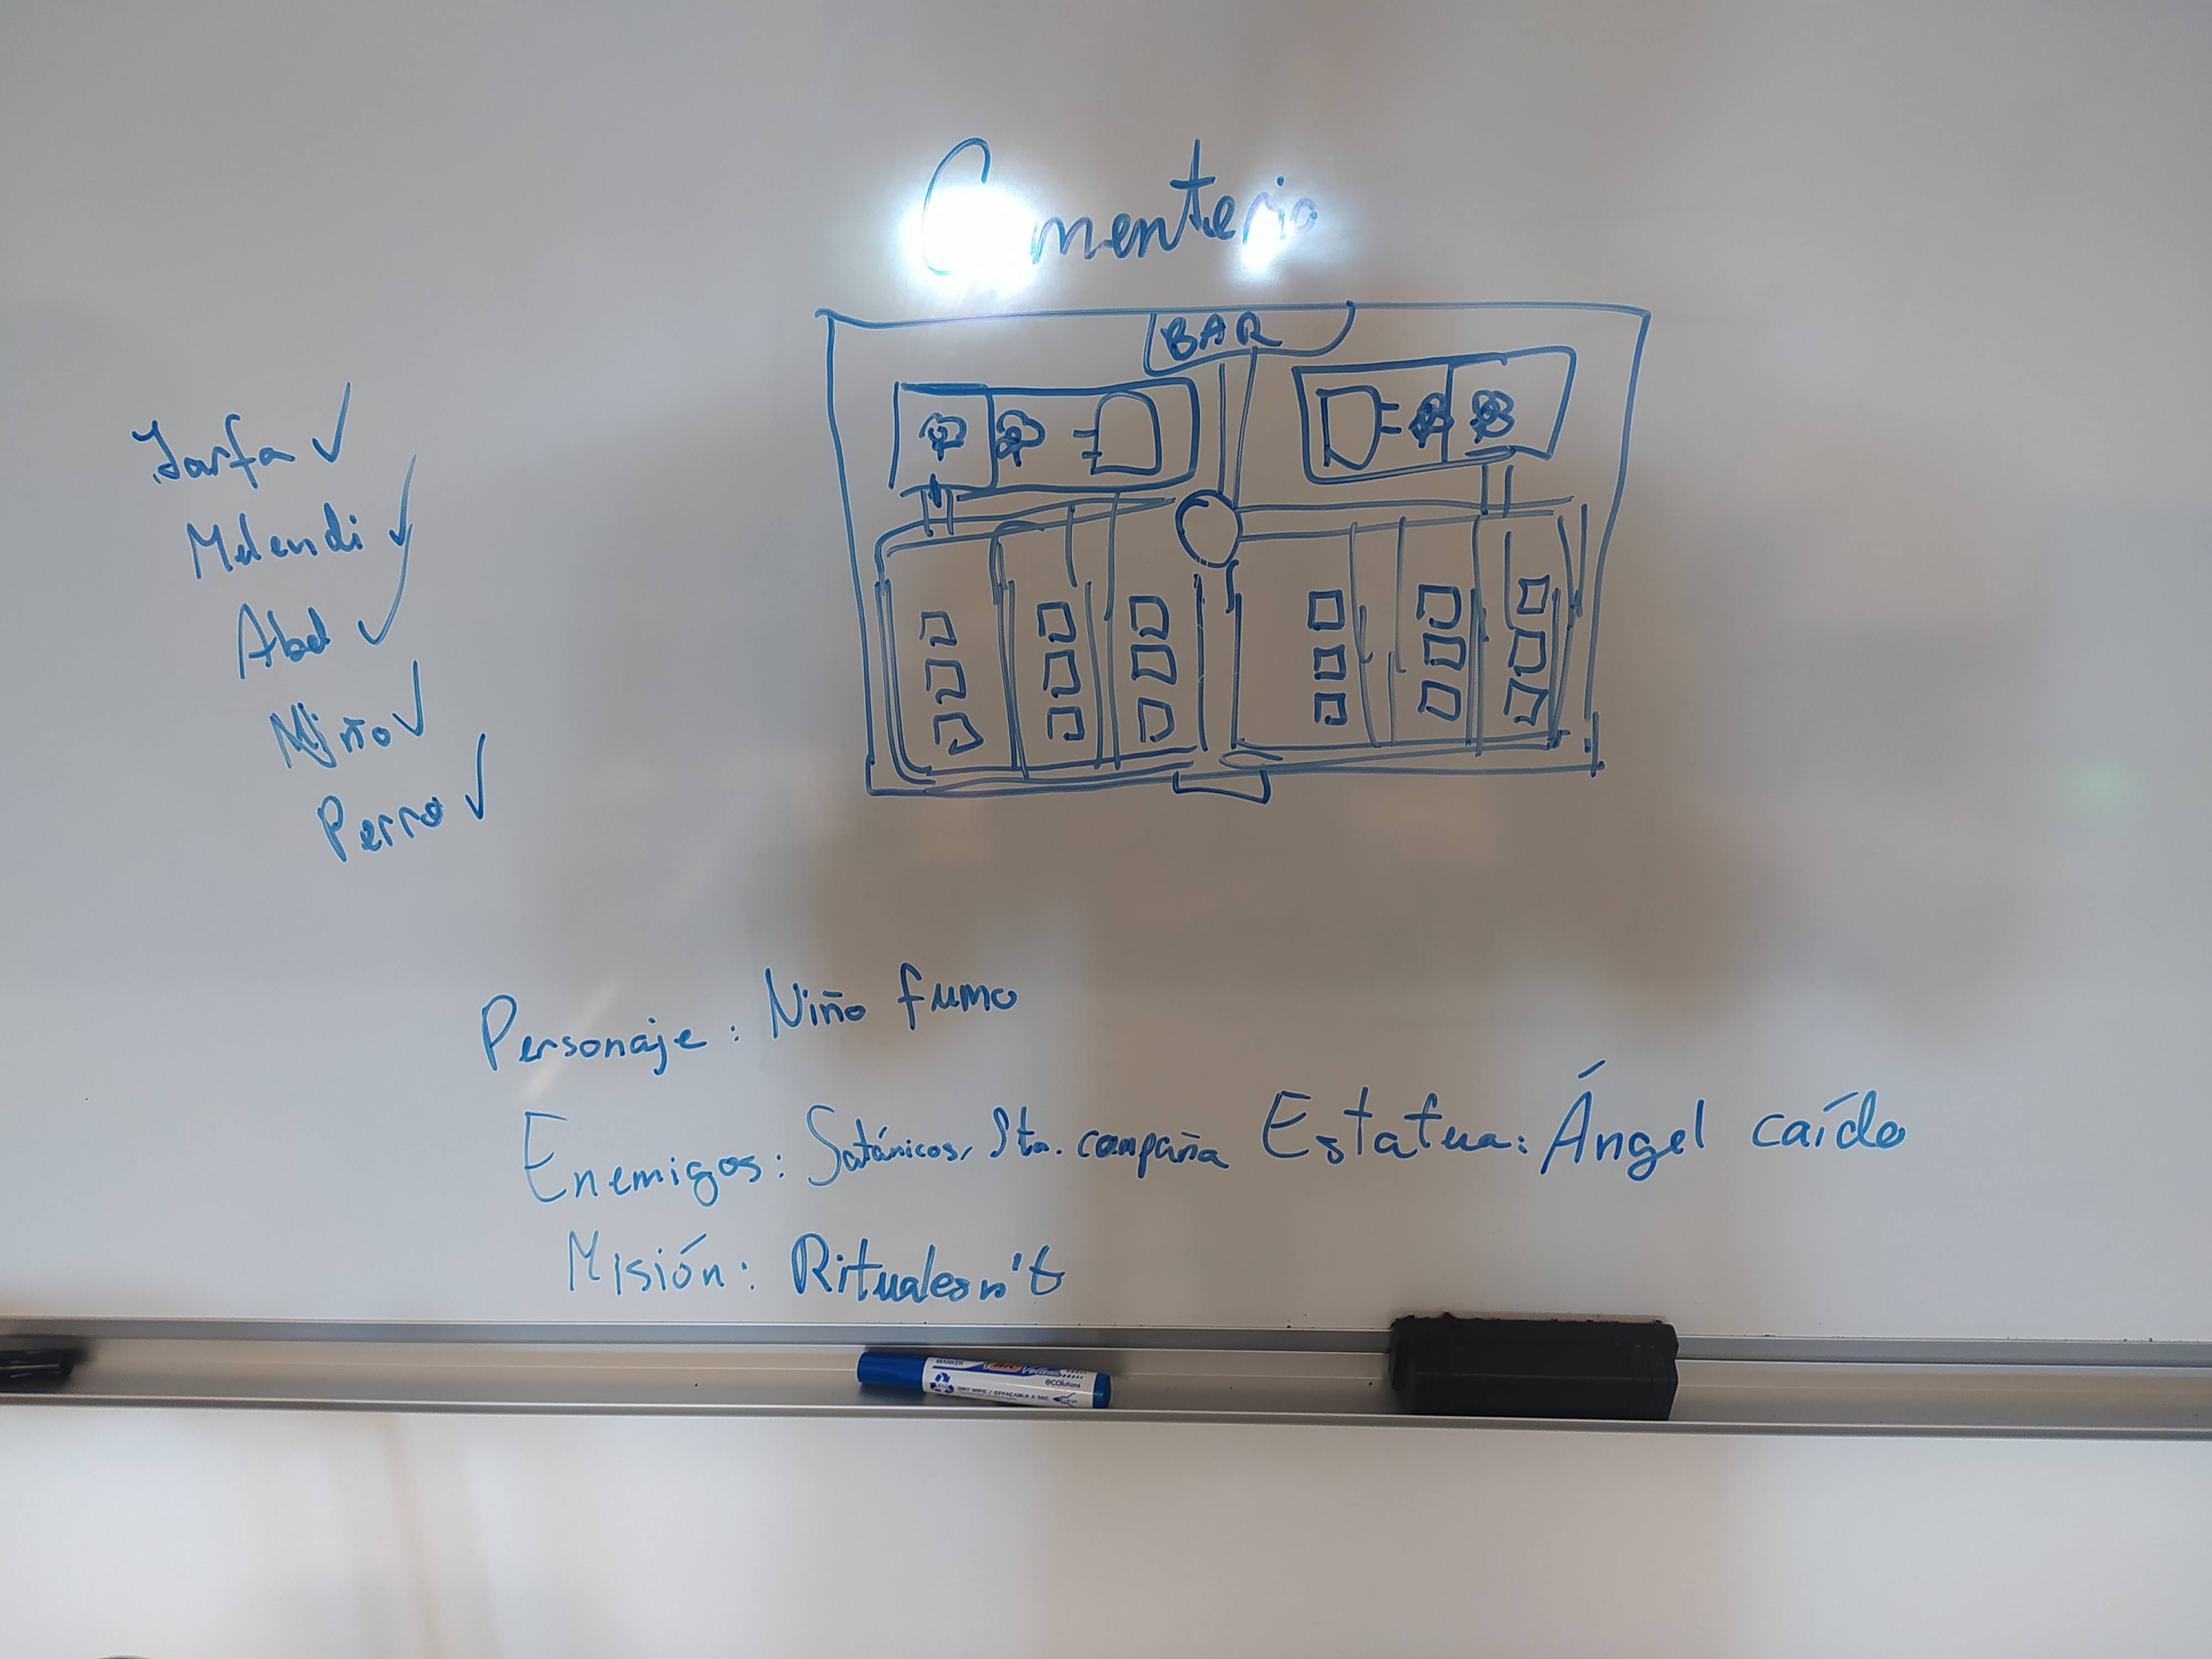 Cementerio
BAR
Jarfa ✓
Melendi ✓
Abad ✓
Niño ✓
Perro ✓
Personaje: Niño fumo
Enemigos: Satánicos, Sta. compaña
Estatua: Ángel caído
Misión: Ritualesn't
MARKER
ecOlutions
DRY WIPE / EFFAÇABLE A SEC